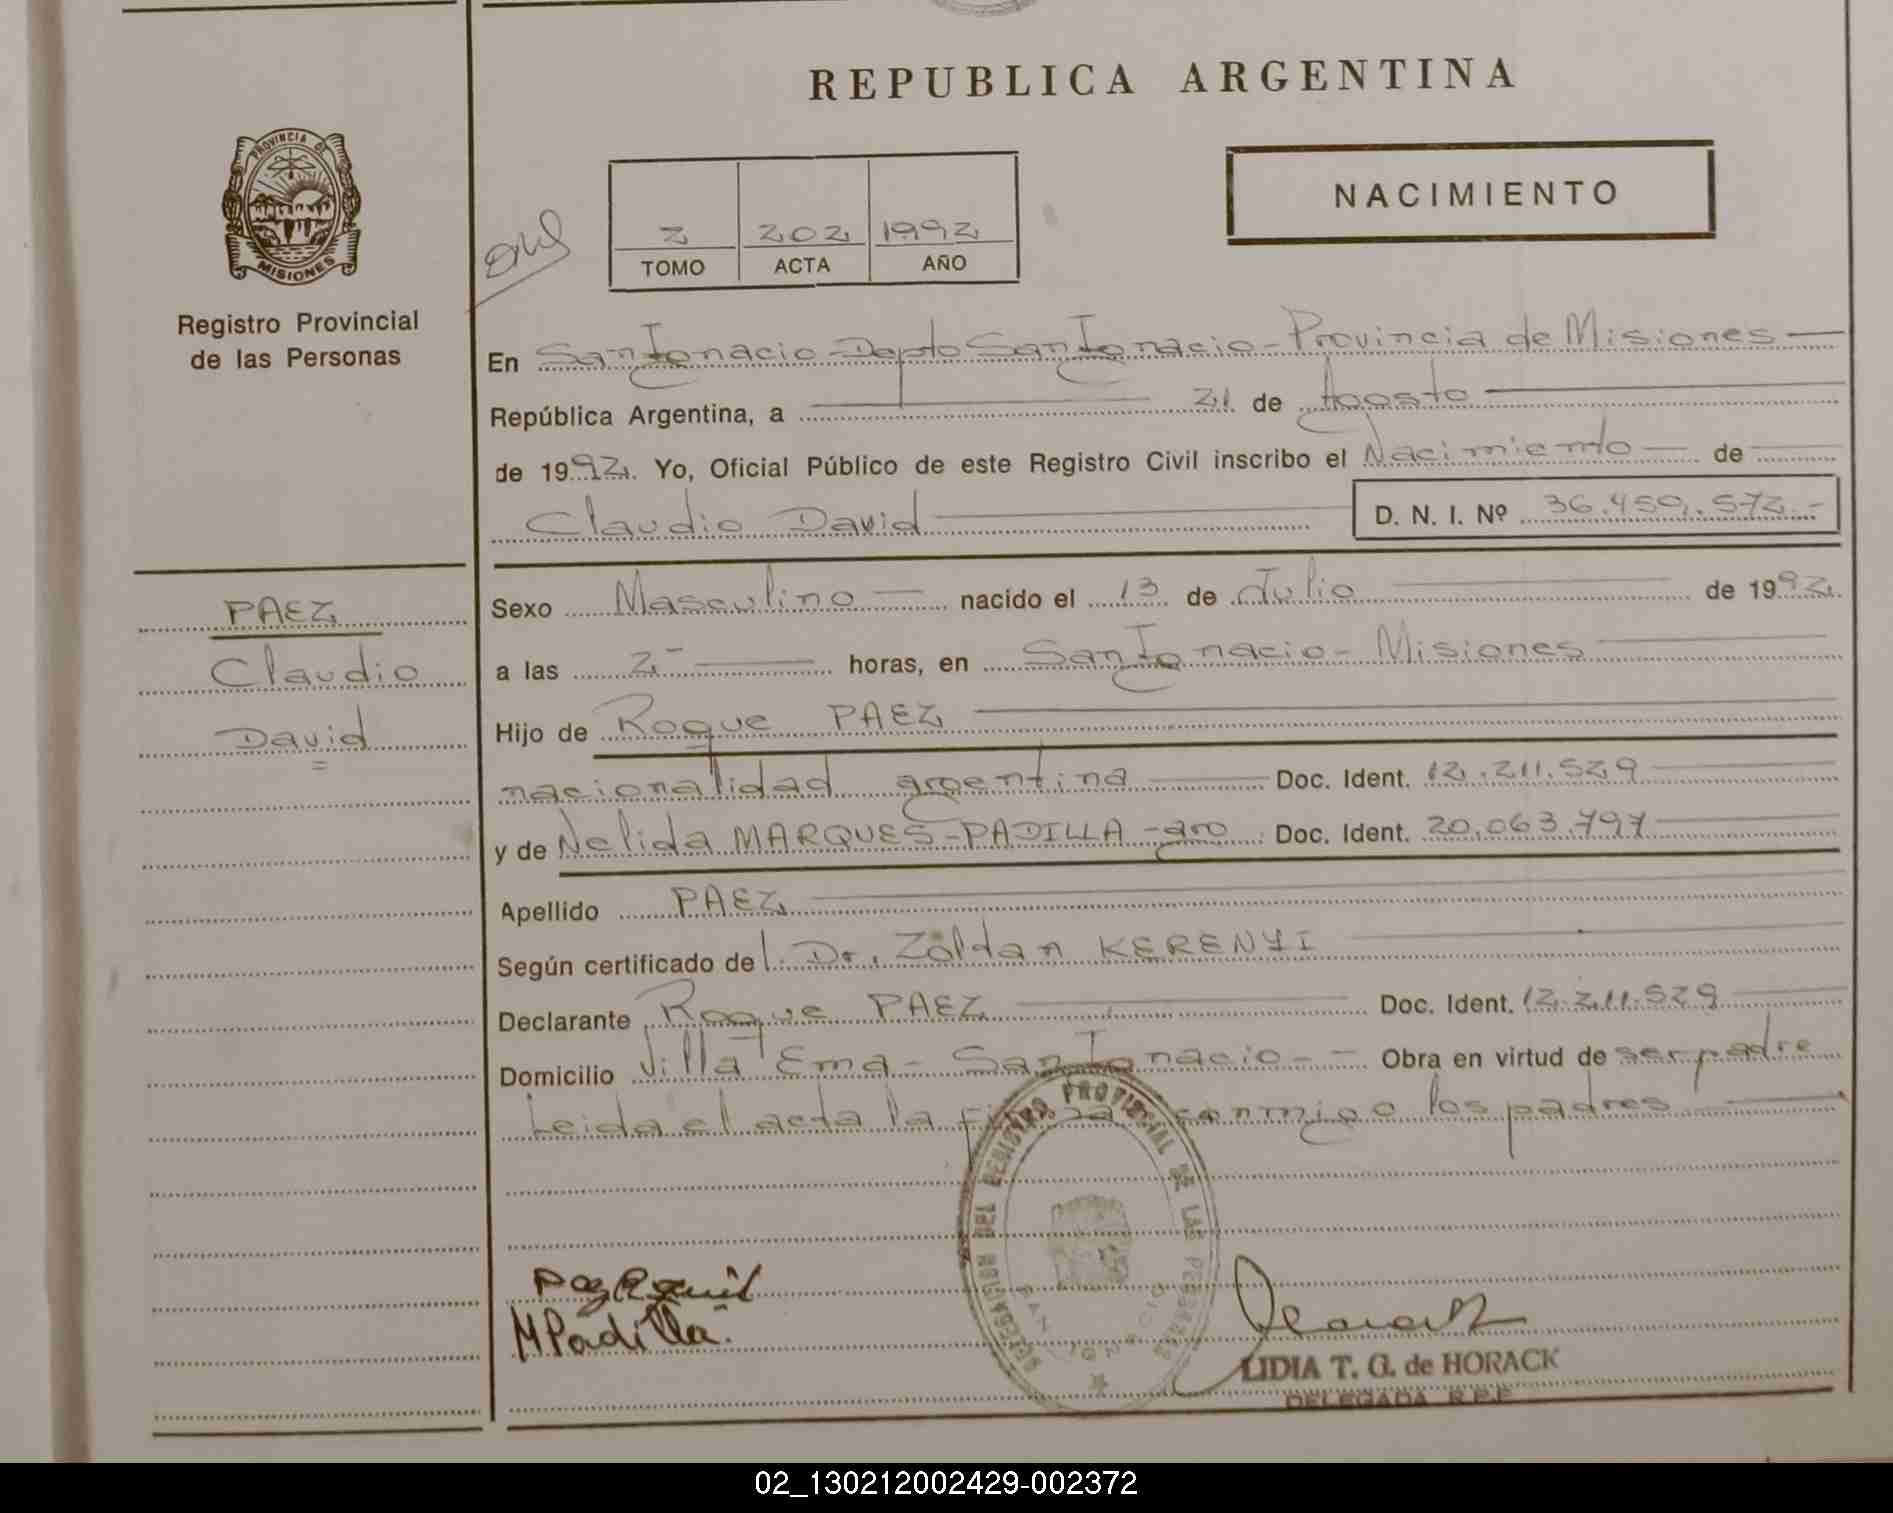 REPUBLICA ARGENTINA
PROVINCIA DE
MISIONES
Registro Provincial
de las Personas
NACIMIENTO
2 202 1992
TOMO ACTA AÑO
En San Ignacio-Depto San Ignacio-Provincia de Misiones-
República Argentina, a 21 de Agosto
de 1992. Yo, Oficial Público de este Registro Civil inscribo el Nacimiento - de
Claudio David
D. N. I. Nº 36.459.572.-
PAEZ
Claudio
David
Sexo Masculino - nacido el 13 de Julio de 1992.
a las 2- horas, en San Ignacio- Misiones
Hijo de Roque PAEZ
nacionalidad argentina Doc. Ident. 12.211.529
y de Nelida MARQUES-PADILLA-arg Doc. Ident. 20.063.797
Apellido PAEZ
Según certificado del Dr. Zoltan KERENYI
Declarante Roque PAEZ Doc. Ident. 12.211.529
Domicilio Villa Ema- San Ignacio-- Obra en virtud de ser padre
Leida el acta la firman conmigo los padres
DELEGACION DEL REGISTRO PROVINCIAL DE LAS PERSONAS
SAN IGNACIO
MPadilla.
LIDIA T. G. de HORACK
DELEGADA R.P.P.
02_130212002429-002372